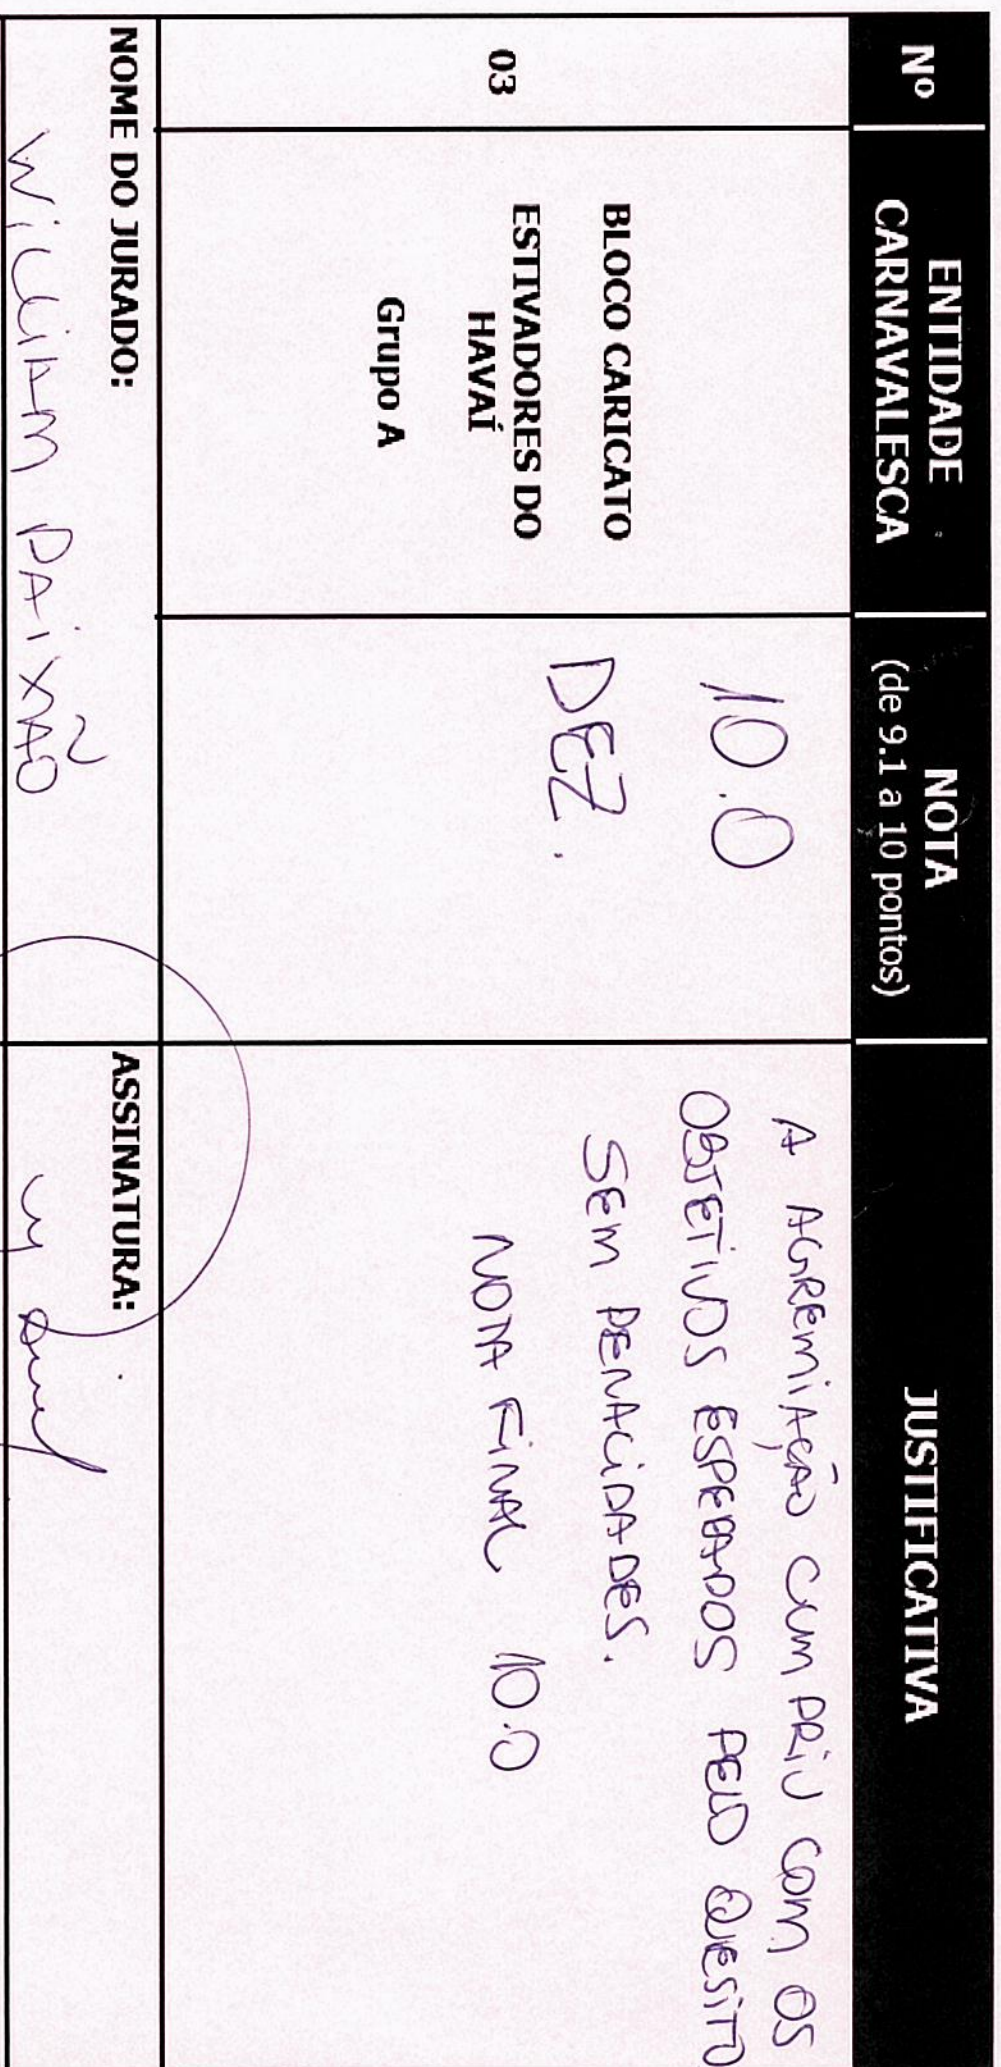 Nº
ENTIDADE
CARNAVALESCA
NOTA
(de 9.1 a 10 pontos)
JUSTIFICATIVA
03
BLOCO CARICATO
ESTIVADORES DO
HAVAÍ
Grupo A
10.0
DEZ.
A AGREMIAÇÃO CUMPRIU COM OS
OBJETIVOS ESPERADOS PELO QUESITO
SEM PENALIDADES.
NOTA FINAL 10.0
NOME DO JURADO:
WILLIAM PAIXÃO
ASSINATURA: